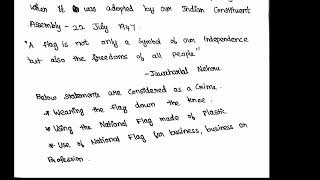 when it was adopted by our Indian Constituent
Assembly - 22 July 1947.
"A flag is not only a symbol of our Independence
but also the freedoms of all people"
- Jawaharlal Nehru.
Below statements are considered as a Crime.
* Wearing the flag down the knee.
* Using the National Flag made of Plastic
* Use of National Flag for business, business or
Profession.